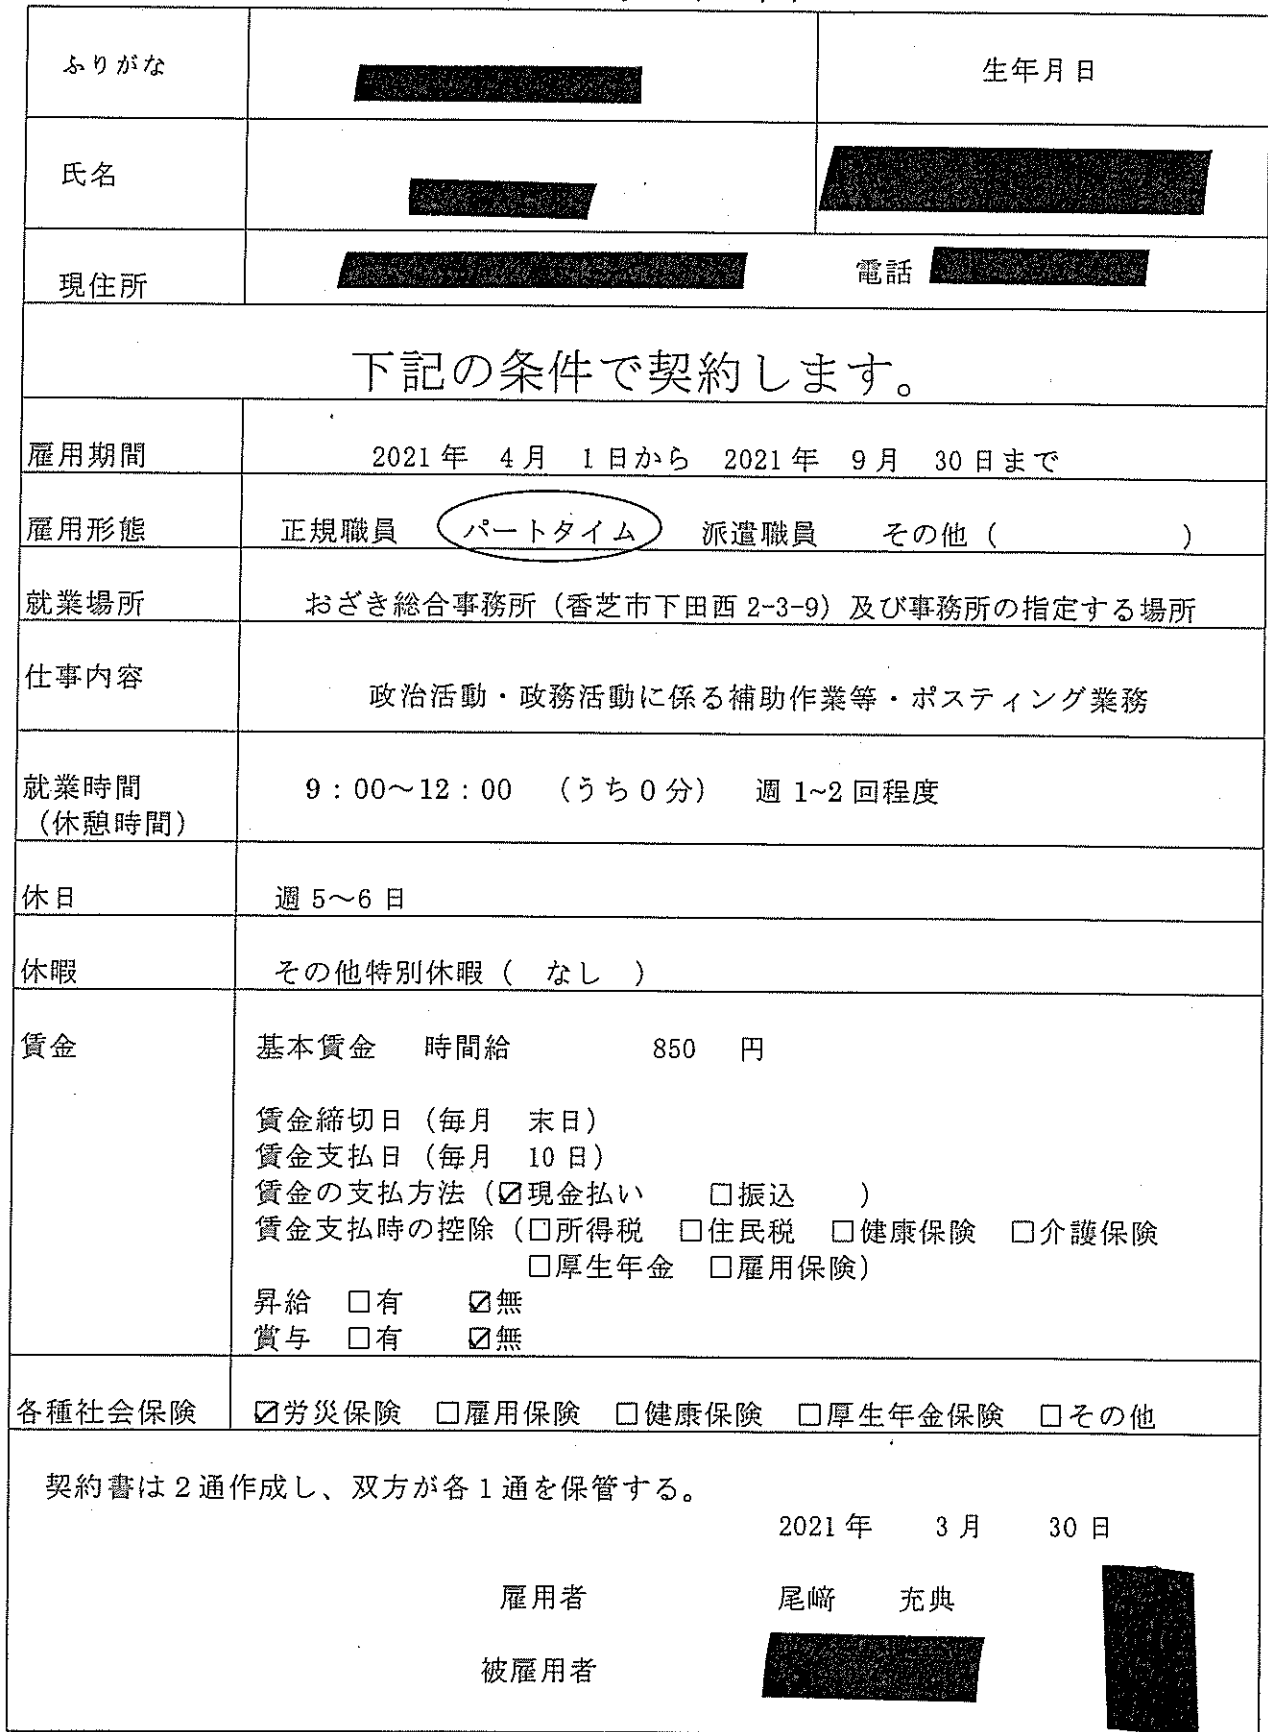 ふりがな 生年月日
氏名
現住所 電話
下記の条件で契約します。
雇用期間 2021年 4月 1日から 2021年 9月 30日まで
雇用形態 正規職員 パートタイム 派遣職員 その他（ ）
就業場所 おざき総合事務所（香芝市下田西2-3-9）及び事務所の指定する場所
仕事内容 政治活動・政務活動に係る補助作業等・ポスティング業務
就業時間 9：00～12：00 （うち0分） 週1~2回程度
（休憩時間）
休日 週5～6日
休暇 その他特別休暇（ なし ）
賃金 基本賃金 時間給 850 円
賃金締切日（毎月 末日）
賃金支払日（毎月 10日）
賃金の支払方法（☑現金払い □振込 ）
賃金支払時の控除（□所得税 □住民税 □健康保険 □介護保険
□厚生年金 □雇用保険）
昇給 □有 ☑無
賞与 □有 ☑無
各種社会保険 ☑労災保険 □雇用保険 □健康保険 □厚生年金保険 □その他
契約書は2通作成し、双方が各1通を保管する。
2021年 3月 30日
雇用者 尾﨑 充典
被雇用者